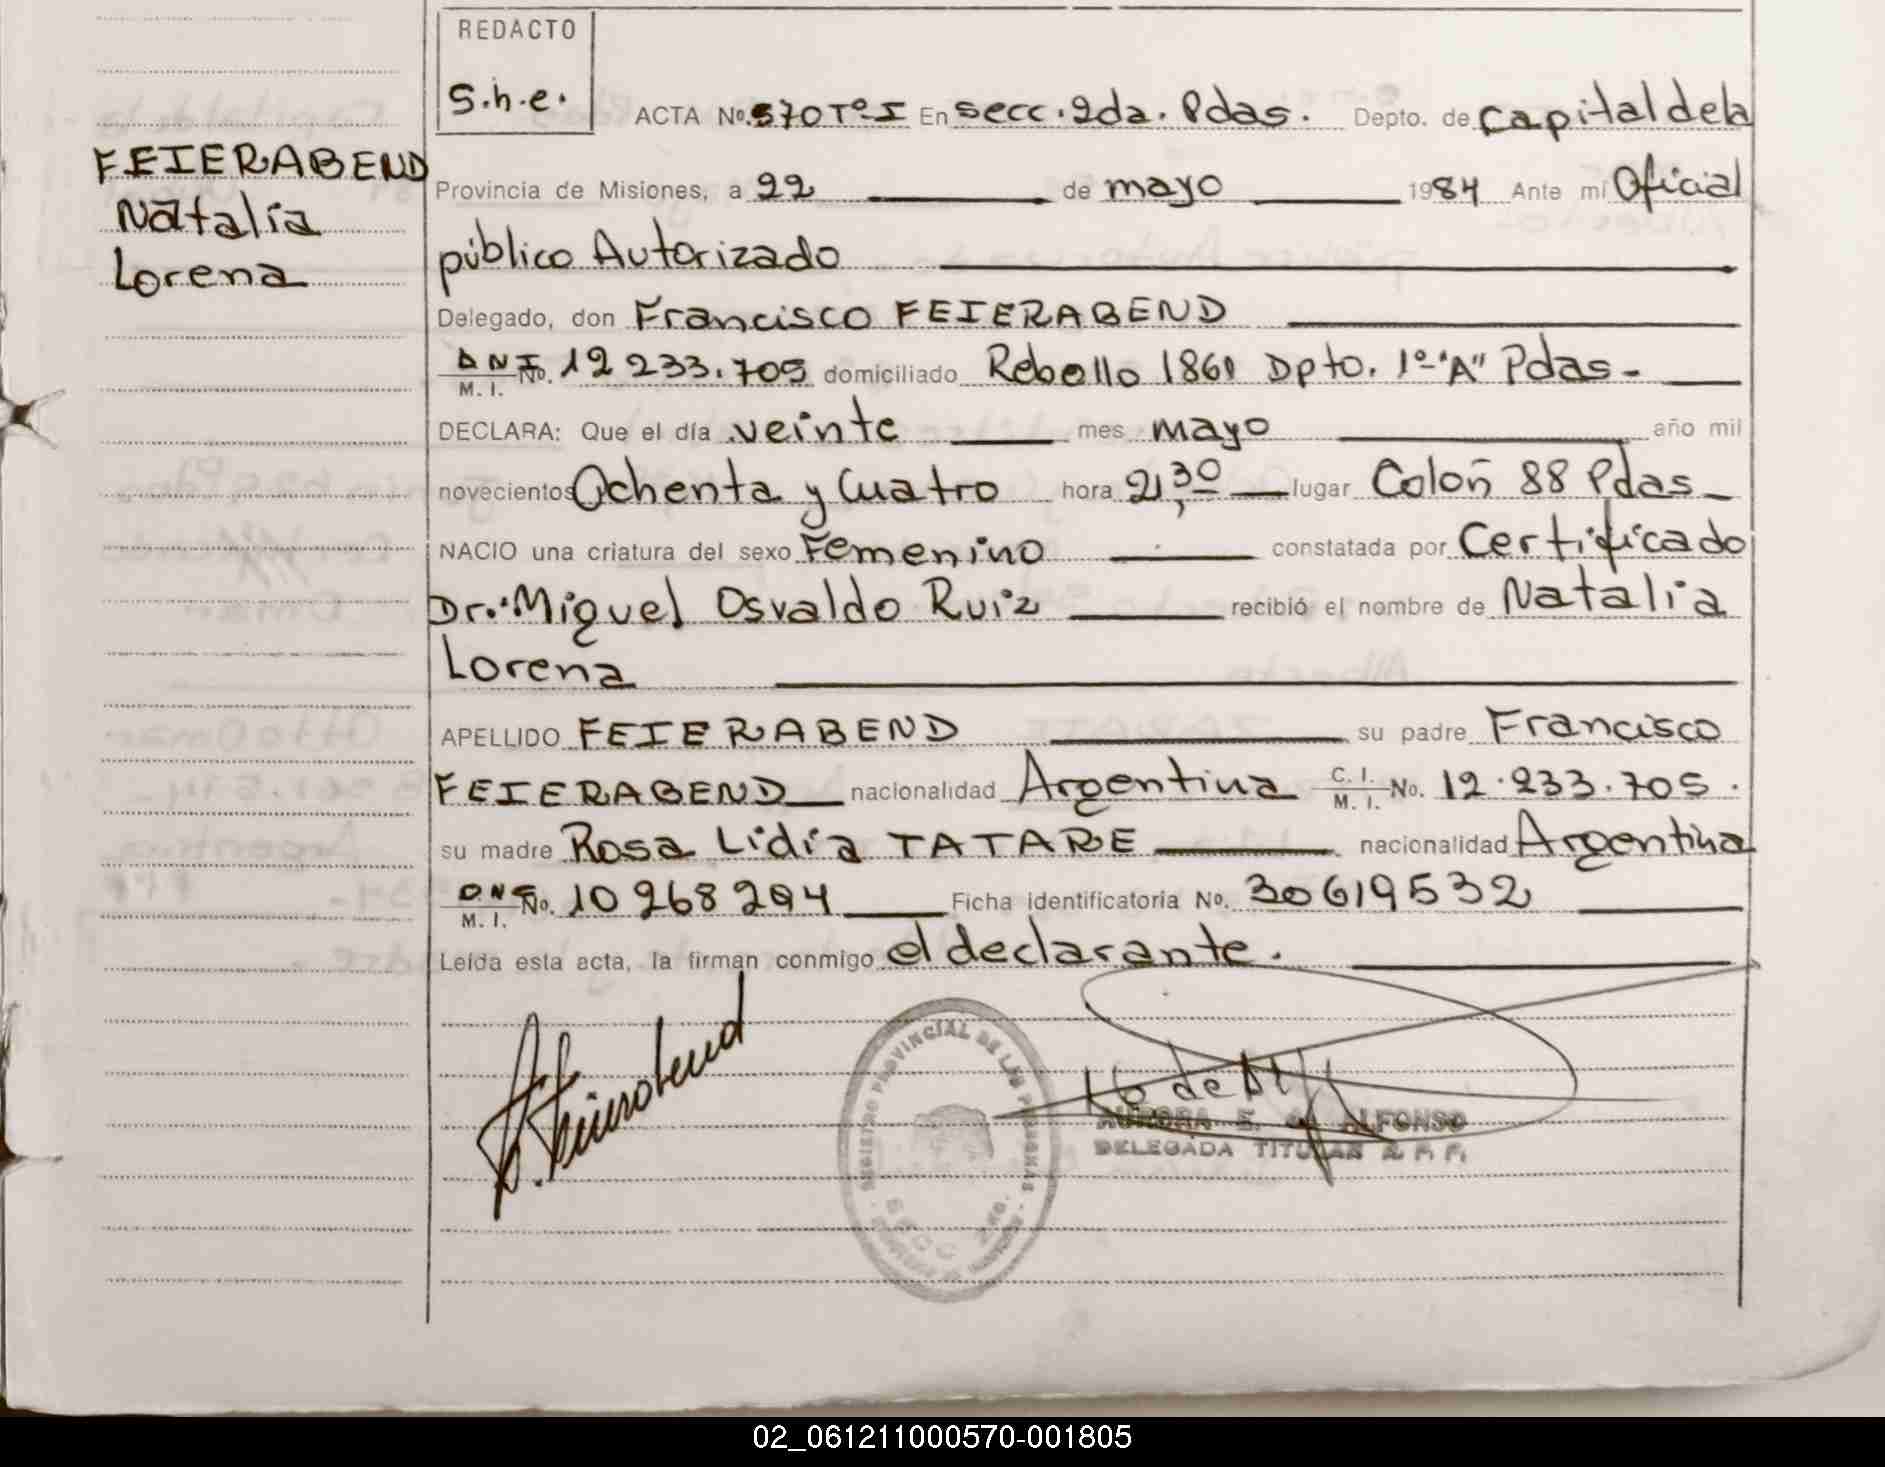 REDACTO
S.h.e.
ACTA No. 570 Tº-I En secc. 2da. Pdas. Depto. de Capital de la
FEIERABEND
Natalia
Lorena
Provincia de Misiones, a 22 de mayo 1984 Ante mí Oficial
público Autorizado
Delegado, don Francisco FEIERABEND
DNI No. 12 233.705 domiciliado Rebollo 1861 Dpto. 1º "A" Pdas.
M. I.
DECLARA: Que el día veinte mes mayo año mil
novecientos Ochenta y Cuatro hora 21,30 lugar Colón 88 Pdas
NACIO una criatura del sexo Femenino constatada por Certificado
Dr. Miguel Osvaldo Ruiz recibió el nombre de Natalia
Lorena
APELLIDO FEIERABEND su padre Francisco
FEIERABEND nacionalidad Argentina C. I. M. I. No. 12.233.705.
su madre Rosa Lidia TATARE nacionalidad Argentina
DNI No. 10 268 294 Ficha identificatoria No. 30619532
M. I.
Leída esta acta, la firman conmigo el declarante.
REGISTRO PROVINCIAL DE LAS PERSONAS
SECC 2DA.
AURORA E. de ALFONSO
DELEGADA TITULAR R. P. P.
02_061211000570-001805